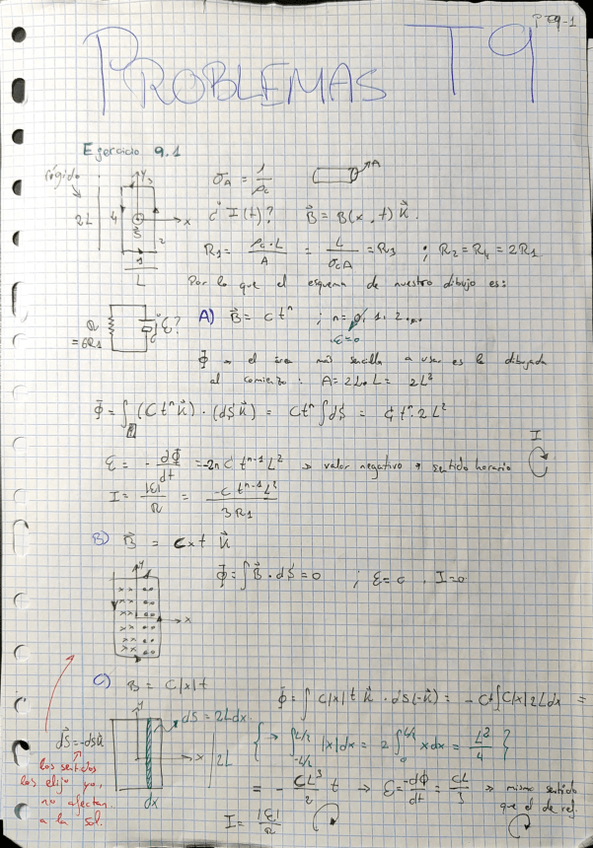 P T9-1
PROBLEMAS T9
Ejercicio 9.1
rígido
2L
L
σ_A = 1/ρ_c
A
¿ I(t)? B⃗ = B(x, t) k⃗.
R₁ = ρ_c·L/A = L/(σ_c A) = R₃ ; R₂ = R₄ = 2R₁
Por lo que el esquema de nuestro dibujo es:
R = 6R₁
ε?
A) B⃗ = C tⁿ ; n = 0, 1, 2...
ε=0
Φ → el área más sencilla a usar es la dibujada
al comienzo: A = 2L·L = 2L²
Φ = ∫ (C tⁿ k⃗) · (dS k⃗) = C tⁿ ∫ dS = C tⁿ 2L²
ε = - dΦ/dt = -2n C tⁿ⁻¹ L² → valor negativo → sentido horario
I
I = |ε|/R = -C tⁿ⁻¹ L² / 3R₁
B) B⃗ = C x t k⃗
Φ = ∫ B⃗ · dS⃗ = 0 ; ε = 0 . I = 0
C) B = C|x|t
Φ = ∫ C|x| t k⃗ · dS(-k⃗) = - Ct ∫ C|x| 2L dx =
dS = 2L dx
dS⃗ = -dS k⃗
{ → ∫_{-L/2}^{L/2} |x| dx = 2 ∫_0^{L/2} x dx = L²/4 }
2L
los sentidos
los elijo yo,
no afectan
a la sol.
dx
= - CL³/2 t → ε = -dΦ/dt = → mismo sentido
que el de ref.
I = |ε|/R